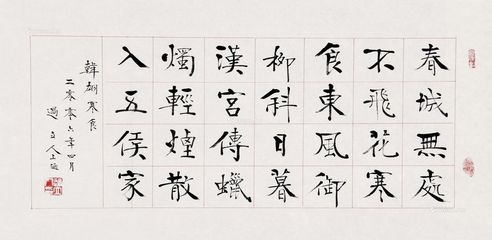 春城無處
不飛花寒
食東風御
柳斜日暮
漢宮傳蠟
燭輕煙散
入五侯家
韓翃寒食
二零零六年四月
過立人